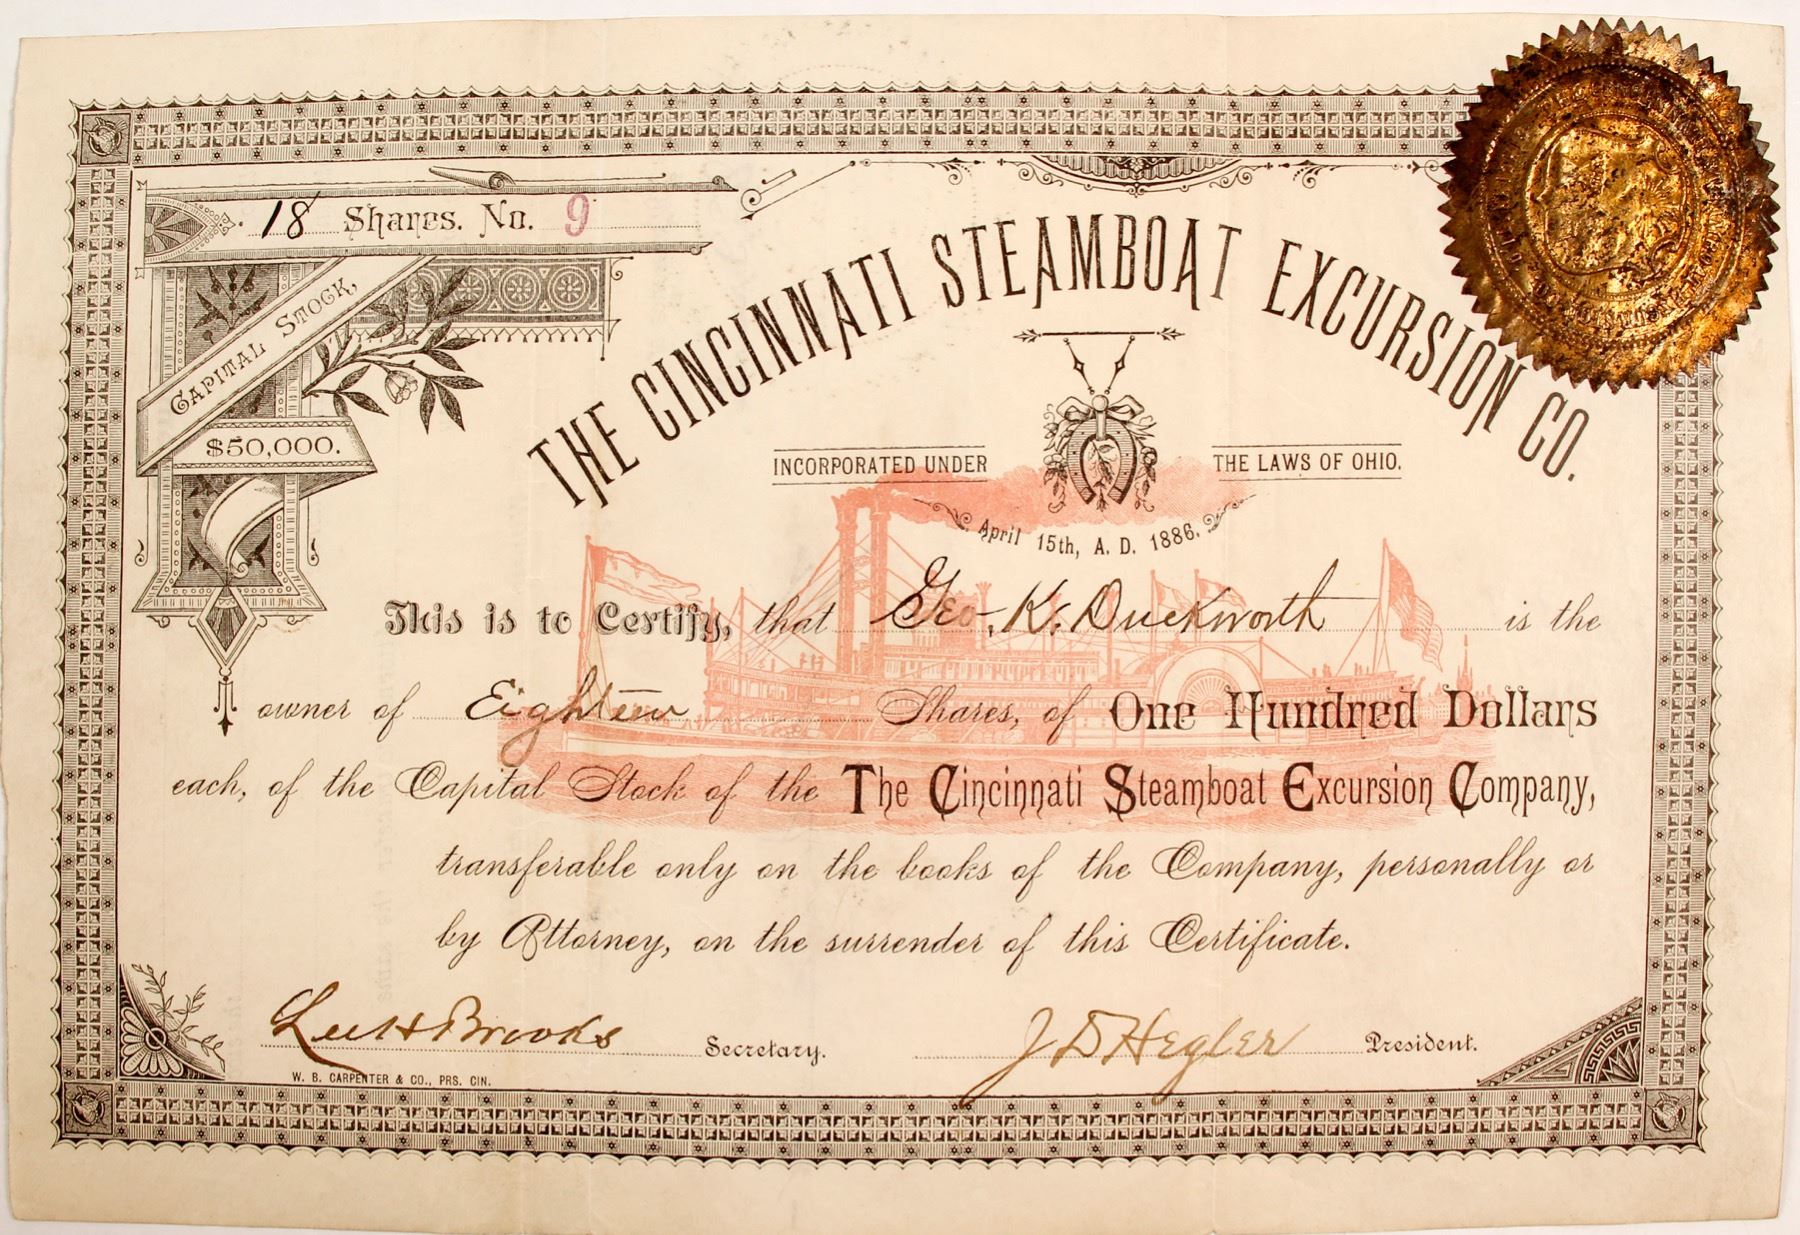 18 Shares. No. 9
CAPITAL STOCK,
$50,000.
THE CINCINNATI STEAMBOAT EXCURSION CO.
INCORPORATED UNDER THE LAWS OF OHIO.
April 15th, A. D. 1886.
This is to Certify, that Geo. K. Duckworth is the
owner of Eighteen Shares, of One Hundred Dollars
each, of the Capital Stock of the The Cincinnati Steamboat Excursion Company,
transferable only on the books of the Company, personally or
by Attorney, on the surrender of this Certificate.
Lee H Brooks Secretary. J D Hegler President.
W. B. CARPENTER & CO., PRS. CIN.